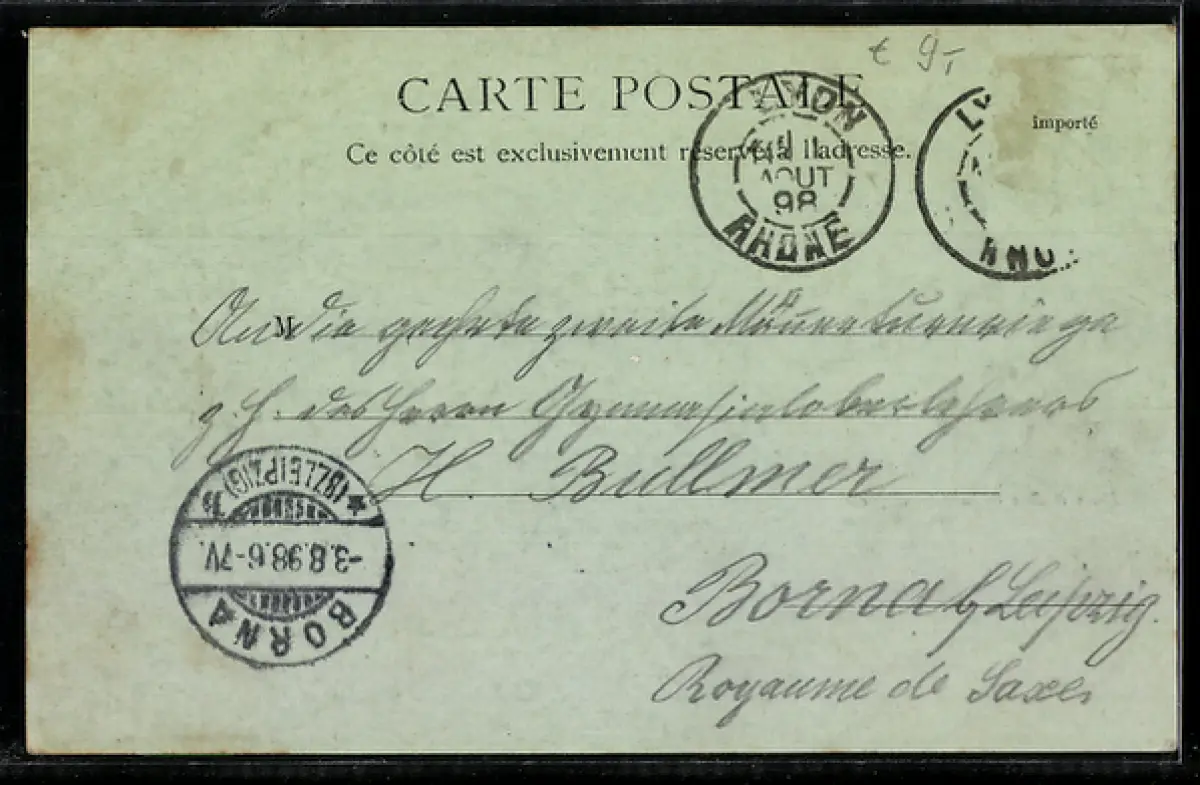 € 9,-
CARTE POSTALE
importé
Ce côté est exclusivement réservé à l'adresse.
LYON
1
AOUT
98
RHONE
LY
RHO
M
An die geehrte zweite Männerturnriege
z. H. des Herrn Gymnasialoberlehrers
H. Bullmer
Borna b/Leipzig.
Royaume de Saxe
BORNA
-3.8.98.6-7V.
(BZ LEIPZIG)